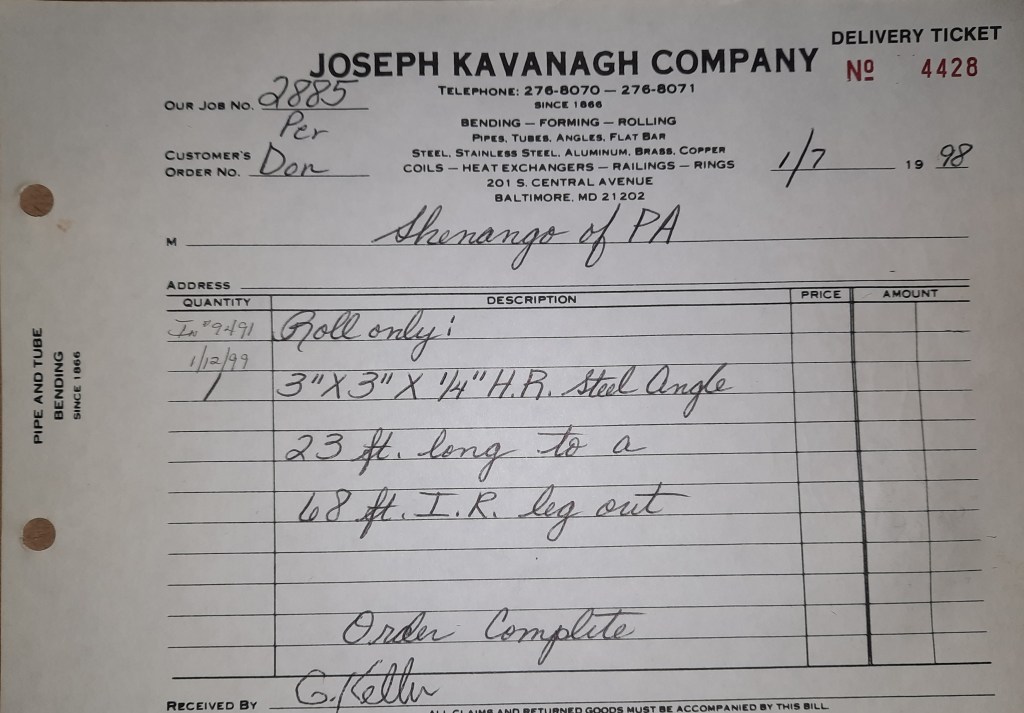 DELIVERY TICKET
JOSEPH KAVANAGH COMPANY
Nº 4428
TELEPHONE: 276-8070 — 276-8071
SINCE 1866
OUR JOB NO. 2885
BENDING — FORMING — ROLLING
PIPES, TUBES, ANGLES, FLAT BAR
STEEL, STAINLESS STEEL, ALUMINUM, BRASS, COPPER
COILS — HEAT EXCHANGERS — RAILINGS — RINGS
201 S. CENTRAL AVENUE
BALTIMORE, MD 21202
Per
CUSTOMER'S
ORDER NO. Don
1/7 19 98
M Shenango of PA
ADDRESS
QUANTITY DESCRIPTION PRICE AMOUNT
In #9491 Roll only:
1/12/99
1 3" X 3" X 1/4" H.R. Steel Angle
23 ft. long to a
68 ft. I.R. leg out
Order Complete
RECEIVED BY G. Keller
ALL CLAIMS AND RETURNED GOODS MUST BE ACCOMPANIED BY THIS BILL
PIPE AND TUBE
BENDING
SINCE 1866